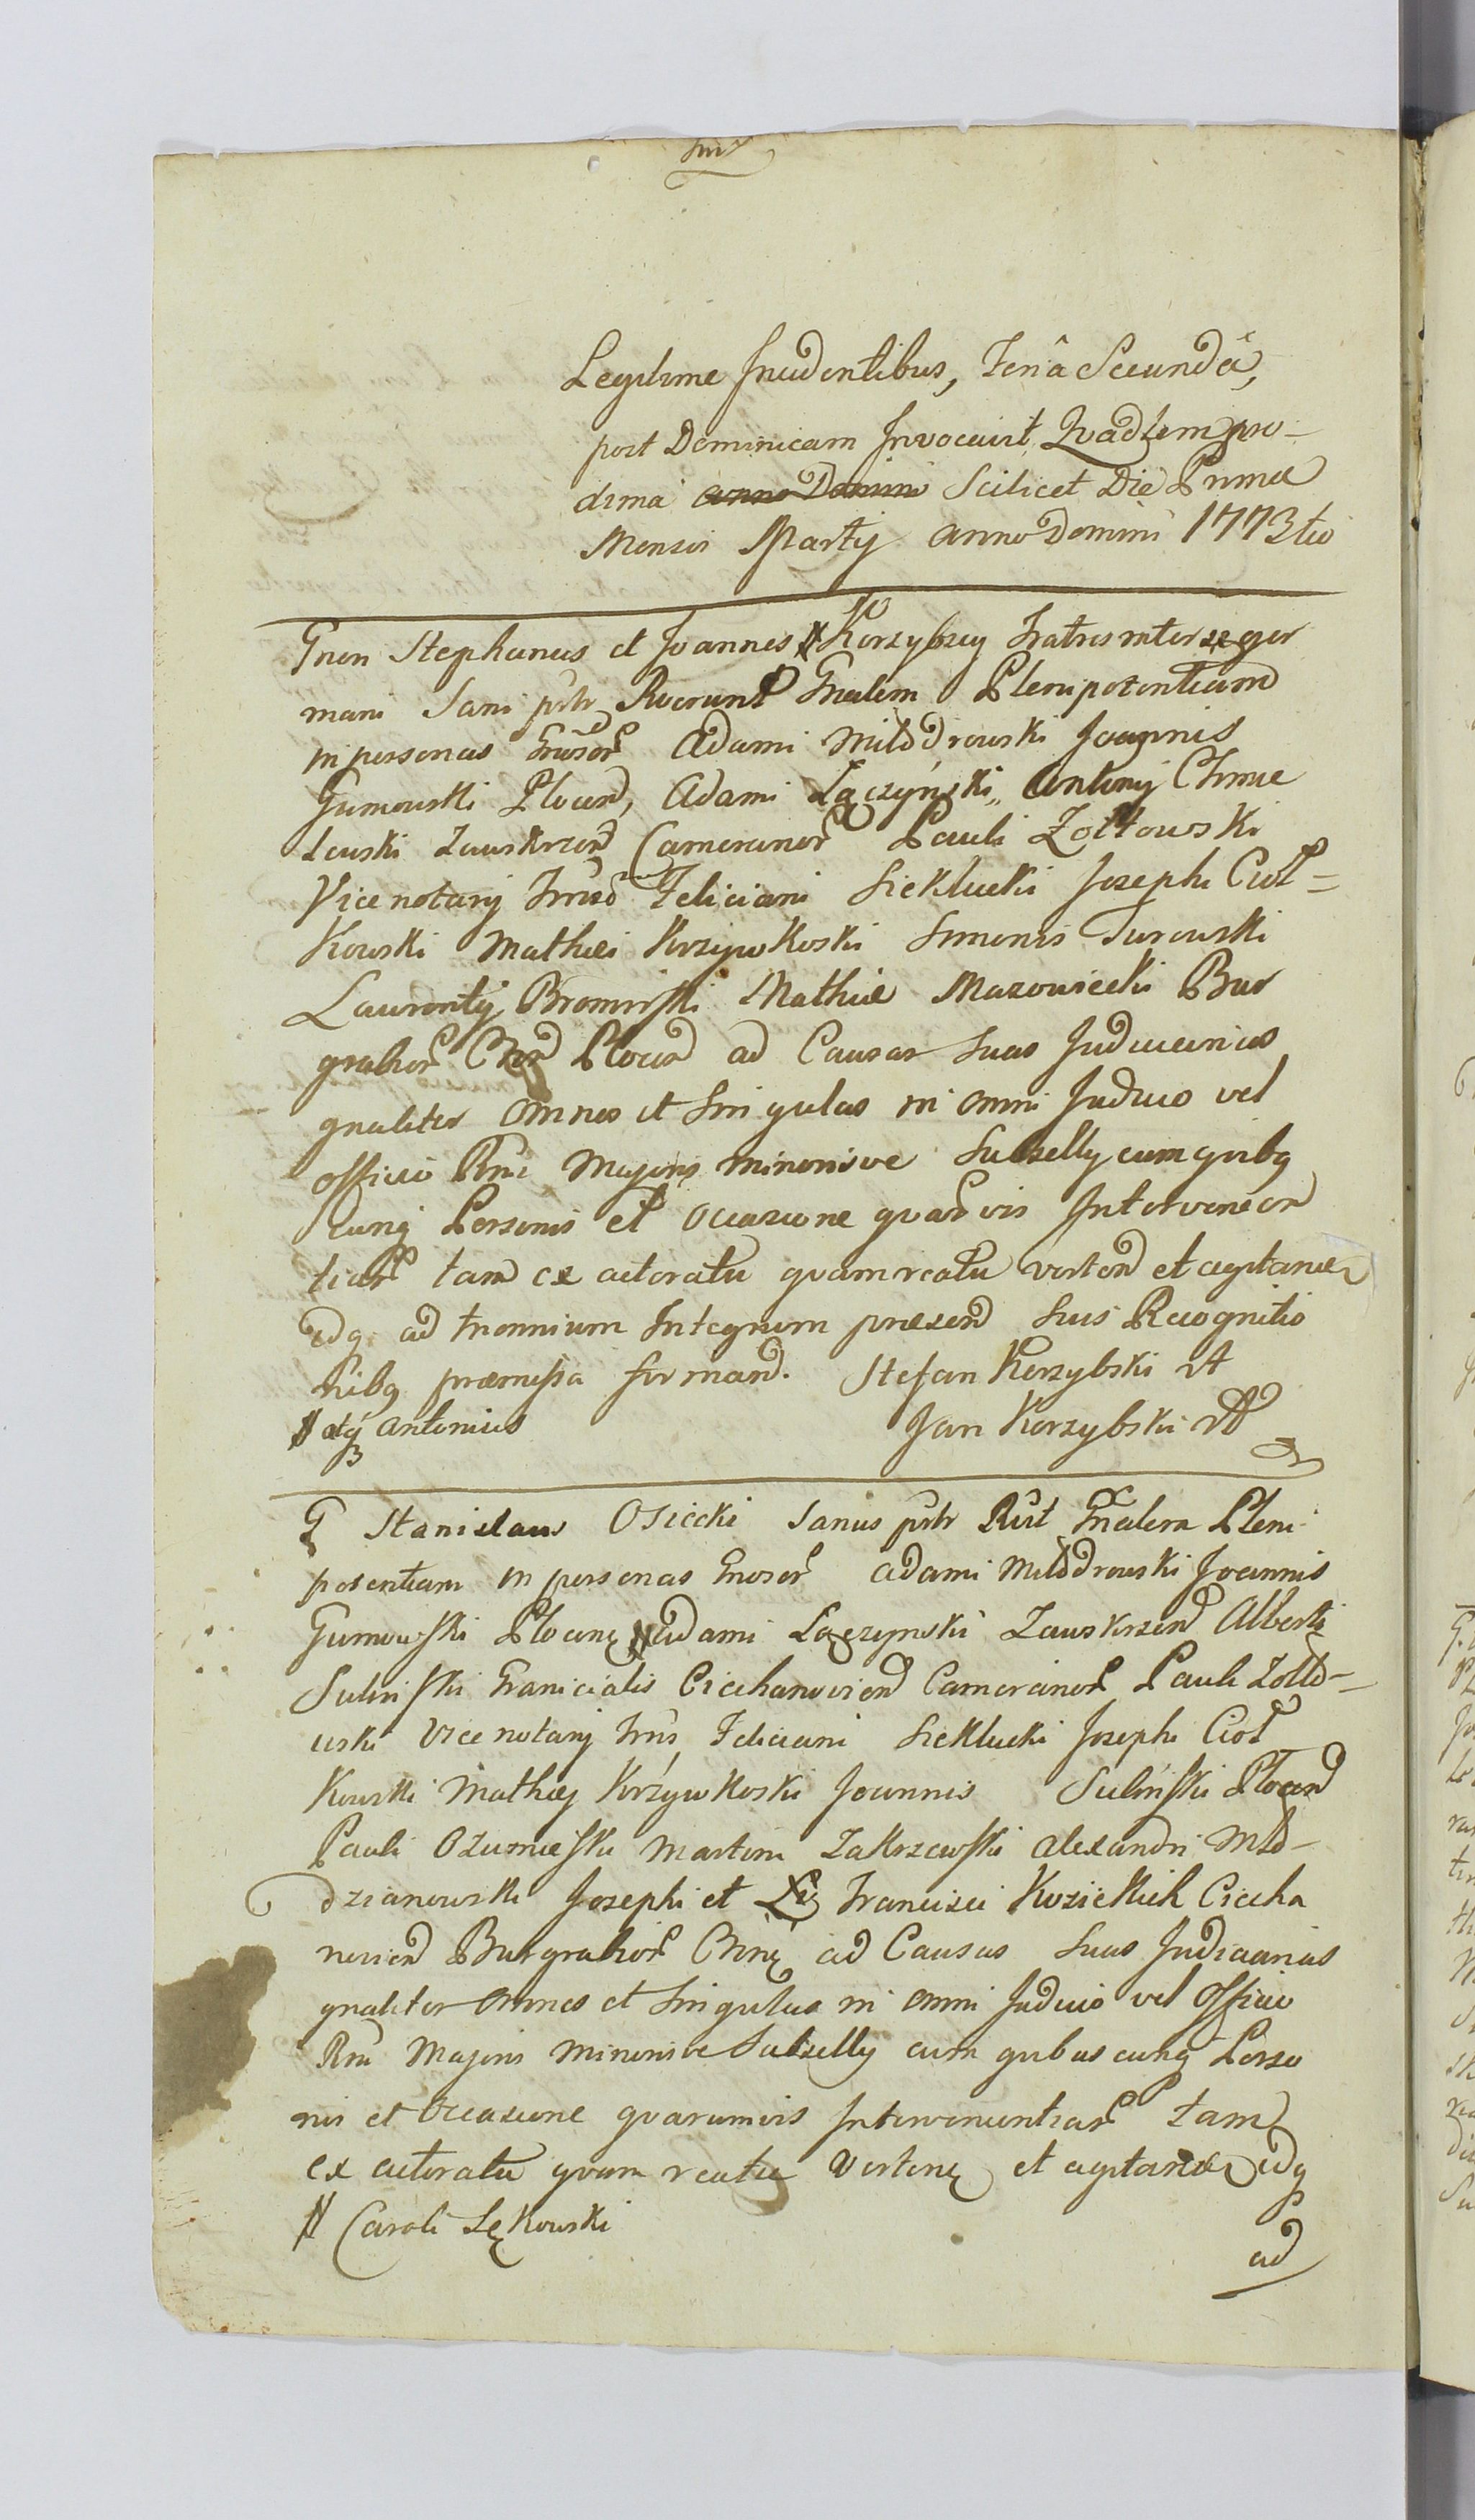 Legitime Incidentibus, Feriâ Secundâ,
post Dominicam Invocavit Qvadlem pro-
xima anno Domini Scilicet Die Prima
Mensis Martÿ anno Domini 1773tio
Gnen Stephanus et Joannes # Korzybscy Fratres inter se ger
mani Sani pstr Rverunt Gnalem Plenipotentiam
in personas Gnosor Adami Miłodrowski Joannis
Gumowski Plocen, Adami Łączyński, Antonij Chmie
lewski Zawskrzen Camerarior Pauli Żółtowski
Vice notarij Feliciani Siekłucki Josephi Ciół=
kowski Mathiei Krzywkoski Simonis Turowski
Laurentÿ Bromirski Mathiæ Mazowiecki Bur
grabior Plocen ad Causas Suas Judiciarias
gnaliter omnes et Singulas in omni Judicio vel
officio Rni Majoris minorisve Subselly cum quibq
cunq Personis et occasione qvarvis Intervenien
tiar tam ex actoratu qvam reatu verten et agitan
idq ad triennium Integrum præsen Suis Recognitio
nibq præmissa firman. Stefan Korzybski
# Antonius Jan Korzybski
G Stanislaus Osiecki Sanus pstr Rvit Gnalem Pleni
potentiam in personas Gnosor Adami Miłodrowski Joannis
Gumowski Plocen # Adami Łączynski Zawskrzen Alberti
Suliński Granicialis Ciechanovien Camerarior Pauli Żółto-
wski Vice notarij Feliciani Siekłucki Josephi Ciół
kowski Mathiæj Krzywkoski Joannis Suliński Plocen
Pauli Martini Zakrzewski Alexandri Mło-
dzianowski Josephi et Francisci Kozickich Ciecha
novien Burgrabior ad Causas Suas Judiciarias
gnaliter omnes et Singulas in omni Judicio vel Officio
Rni Majoris minorisve Subselly cum qvibus cunq Perso
nis et Occasione qvarumvis Intervenientiar tam
ex actoratu qvam reatu Verten et agitan idq
# Caroli Łękowski
ad